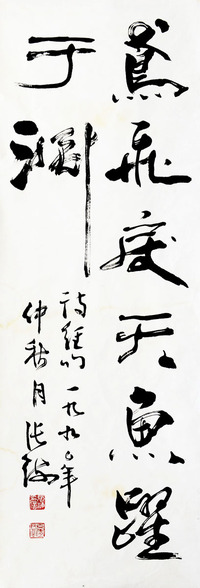 鳶飛戾天魚躍
于淵
詩經句一九九〇年
仲秋月張